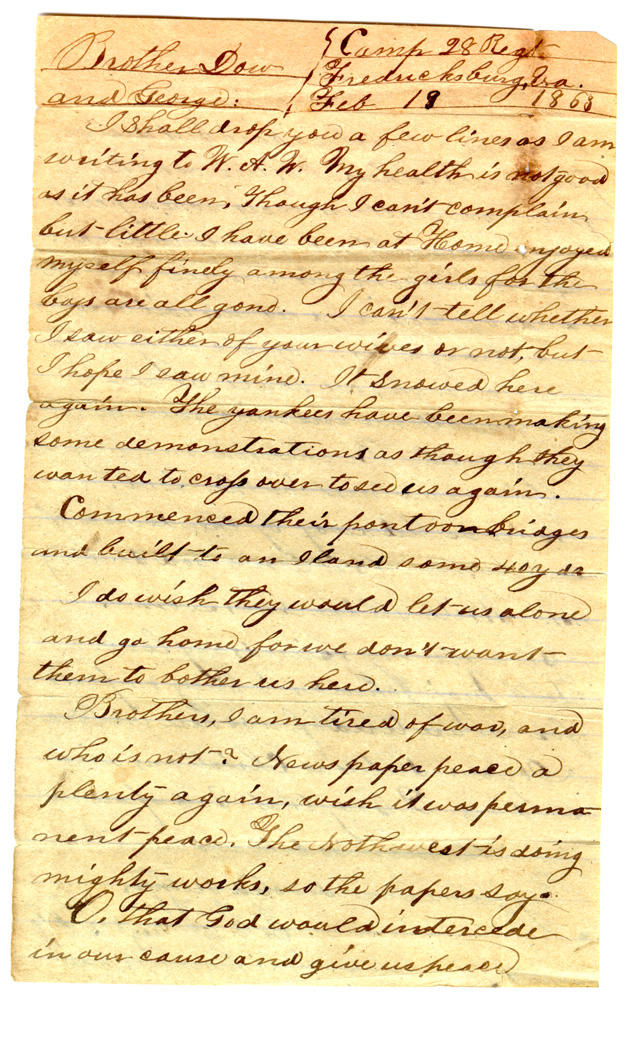 Camp 28 Regt
Brother Dow Fredricksburg, Va.
and George: Feb 19 1863
I shall drop you a few lines as I am
writing to W. A. W. My health is not good
as it has been, Though I can't complain
but little. I have been at Home enjoyed
myself finely among the girls for the
boys are all gone. I can't tell whether
I saw either of your wives or not, but
I hope I saw mine. It snowed here
again. The yankees have been making
some demonstrations as though they
wanted to cross over to see us again.
Commenced their pontoon bridges
and built to an Iland some 40 yds
I do wish they would let us alone
and go home for we don't want
them to bother us here.
Brothers, I am tired of war, and
who is not? News paper peace a
plenty again, wish it was perma
nent peace. The Nothwest is doing
mighty works, so the papers say.
O, that God would intercede
in our cause and give us peace